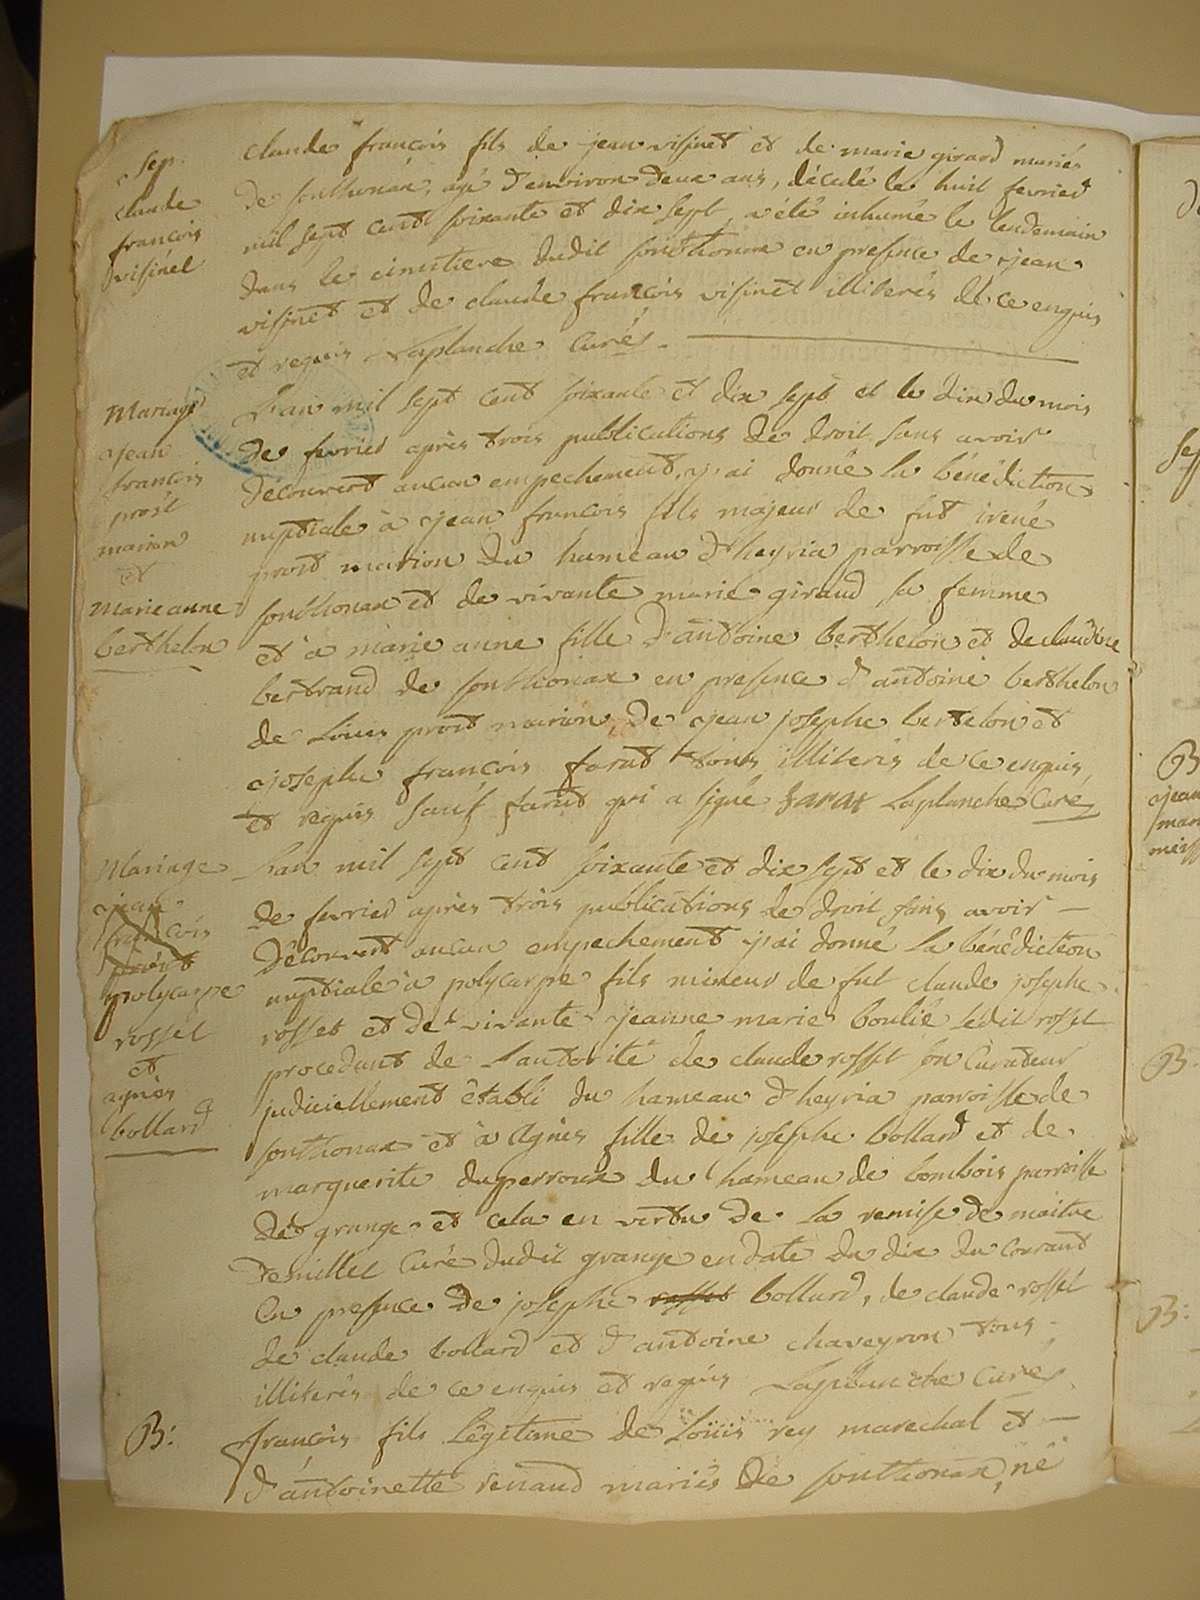 Sep.
claude
françois
visinet
claude françois fils de jean visinet et de marie girard mariés
de sonthonax, agé d'environ deux ans, décédé le huit fevrier
mil sept cent soixante et dix sept, a été inhumé le lendemain
dans le cimetiere dudit sonthonax en presence de jean
visinet et de claude françois visinet illiterés de ce enquis
et requis Laplanche Curé
Mariage
jean
françois
prost
marion
et
Marie anne
berthelon
L'an mil sept cent soixante et dix sept et le dix du mois
de fevrier après trois publications de droit sans avoir
découvert aucun empechement, j'ai donné la bénédiction
nuptiale à jean françois fils majeur de fut irené
prost marion du hameau d'heyria parroisse de
sonthonax et de vivante marie giraud sa femme
et à marie anne fille d'antoine berthelon et de claudine
bertrand de sonthonax en presence d'antoine berthelon
de Louis prost marion de jean josephe bertelon et
josephe françois farat tous illiterés de ce enquis,
et requis sauf farat qui a signé farat Laplanche Curé
Mariage
jean
françois
prost
polycarpe
rosset
et
agnès
bollard
L'an mil sept cent soixante et dix sept et le dix du mois
de fevrier après trois publications de droit sans avoir
découvert aucun empechement j'ai donné la bénédiction
nuptiale à polycarpe fils mineur de fut claude josephe
rosset et de vivante jeanne marie boulié ledit rosset
procedant de L'autorité de claude rosset son Curateur
judiciellement établi du hameau d'heyria parroisse de
sonthonax et à Agnès fille de josephe bollard et de
marguerite duperroux du hameau de bombois parroisse
de grange et cela en vertu de la remise de maitre
Demillet Curé dudit grange en date du dix du courant
En presence de josephe rosset bollard, de claude rosset
de claude bollard et d'antoine chaveyron tous
illiterés de ce enquis et requis Laplanche Curé
B:
françois fils Légitime de Loüis rey marechal et
d'antoinette renaud mariés de sonthonax, né
Sep
B
jean
B:
B: